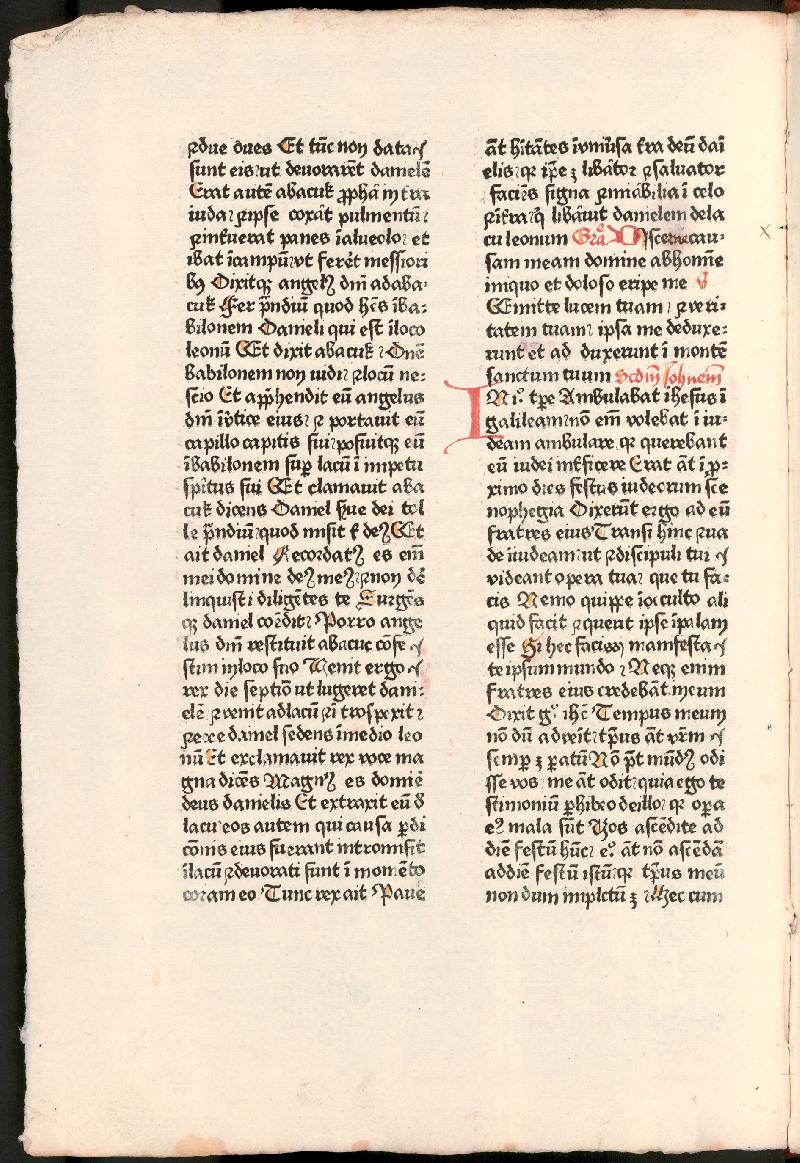 ⁊due oues Et tūc non datae
sunt eis ut deuorarēt damelē
Erat autē abacuk ꝓphā in t̄ra
iuda ⁊ ipse coxāt pulmentū ⁊
⁊ intuerat panes ī alueolo ⁊ et
ibat ī campū ut ferēt messiori
bꝫ Dixitqꝫ angelꝰ dn̄i ad aba⸗
cuk Fer p̄ndiū quod hēs ī ba⸗
bilonem Danieli qui est ī loco
leonū Et dixit abacuk ⁊ Dn̄e
babilonem non uidi ⁊ locū ne⸗
scio Et app̄hendit eū angelus
dn̄i ī v̄tice eius ⁊ ⁊ portauit eū
capillo capitis sui ⁊ posuitqꝫ eū
ī babilonem suꝑ lacū ī impetu
sp̄itus sui Et clamauit aba
cuk dicens Daniel s̄ue dei tol
le p̄ndiū quod misit t̄ deꝰ Et
ait daniel Recordatꝰ es em̄
mei domine deꝰ meꝰ ⁊ non dē
linquisti diligētes te Surgēs
qꝫ daniel comēdit Porro ange
lus dn̄i restituit abacuc cōfe
stim in loco suo Uenit ergo
rex die septīo ut lugeret dani⸗
elē ⁊ uenit ad lacū ⁊ ītrospexit ⁊
⁊ ecce daniel sedens ī medio leo
nū Et exclamauit rex uoce ma
gna dicēs Magnꝰ es domīe
deus danielis Et extraxit eū ð
lacu eos autem qui causa ꝑdi
cōnis eius fuerant intromisit
ī lacū ⁊ deuorati sunt ī momēto
coram eo Tunc rex ait Paue
āt hītātes ī vniūsa t̄ra deū dai
elis qꝛ ip̄e ꝫ libātor ⁊ saluator
faciēs signa ⁊ mīabilia ī celo
⁊ ī t̄ra q̄ libāuit danielem de la
cu leonum Gra͞ Discerne cau⸗
sam meam domine ab homīe
iniquo et doloso eripe me V̄
Emitte lucem tuam ⁊ ueri⸗
tatem tuam ipsa me deduxe⸗
runt et adduxerunt ī montē
sanctum tuum Scdm̄ Iohnem̄
IN i° tp̄e Ambulabat ihesus ī
galileam nō em̄ volebat ī iu⸗
deam ambulare qꝛ querebant
eū iudei int̄ficere Erat āt ī ꝓ⸗
ximo dies festus iudeorum sce
nophegia Dixerūt ergo ad eū
fratres eius Transi hinc ⁊ ua
de ī iudeam ut ⁊ discipuli tui
videant opera tua que tu fa⸗
cis Nemo quippe ī occulto ali
quid facit ⁊ querit ipse ī palam
esse Si hec facis manifesta
te ipsum mundo Neqꝫ enim
fratres eius credebāt in eum
Dixit g° ihē Tempus meum
nō dū aduēit tp̄us āt vr̄m
semꝑ ꝫ ꝑatū Nō p̄t mūdꝰ odi
sse vos me āt odit quia ego te
stimoniū ꝑhibeo de illo qꝛ oꝑa
eꝰ mala sūt Uos ascēdite ad
diē festū hūc e° āt nō ascēdā
ad diē festū istū qꝛ tp̄us meū
non dum impletū ꝫ Hec cum